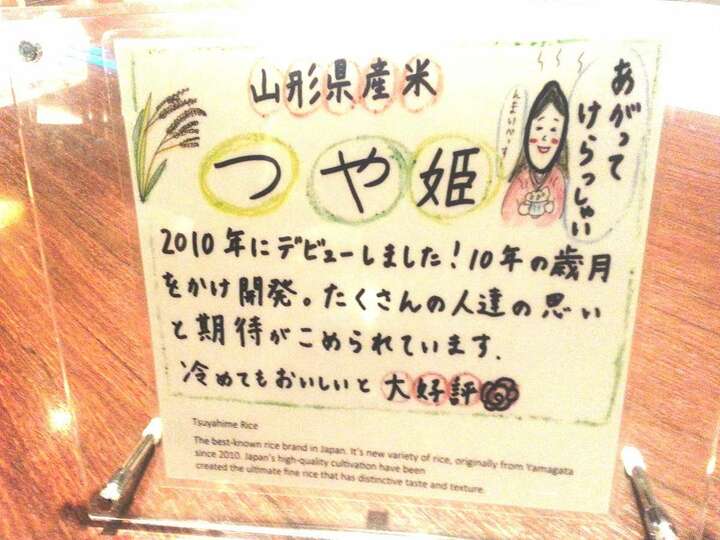 山形県産米
つや姫
あがって
けらっしゃい
んまいか～す
2010年にデビューしました！10年の歳月
をかけ開発。たくさんの人達の思い
と期待がこめられています.
冷めてもおいしいと大好評
Tsuyahime Rice
The best-known rice brand in Japan. It's new variety of rice, originally from Yamagata
since 2010. Japan's high-quality cultivation have been
created the ultimate fine rice that has distinctive taste and texture.